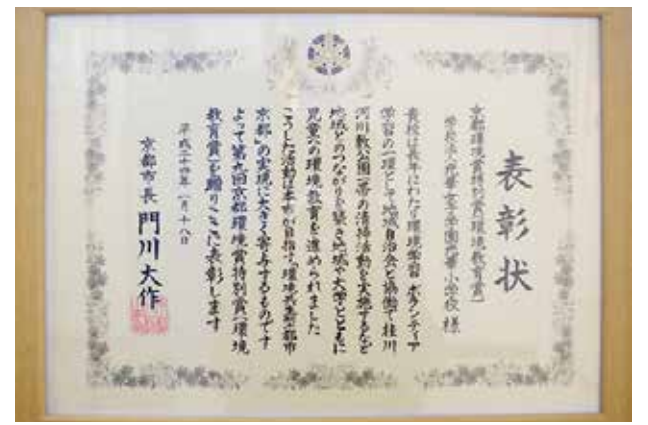 表彰状
京都環境賞特別賞(環境教育賞)
学校法人光華女子学園光華小学校 様
貴校は長年にわたり環境学習・ボランティア
学習の一環として地域自治会と協働で桂川
河川敷公園一帯の清掃活動を実施するなど
地域とのつながりを築き地域や大学とともに
児童への環境教育を進められました
こうした活動は本市が目指す「環境共生型都市・
京都」の実現に大きく寄与するものです
よって第九回京都環境賞特別賞(環境
教育賞)を贈りここに表彰します
平成二十四年一月十八日
京都市長 門川大作